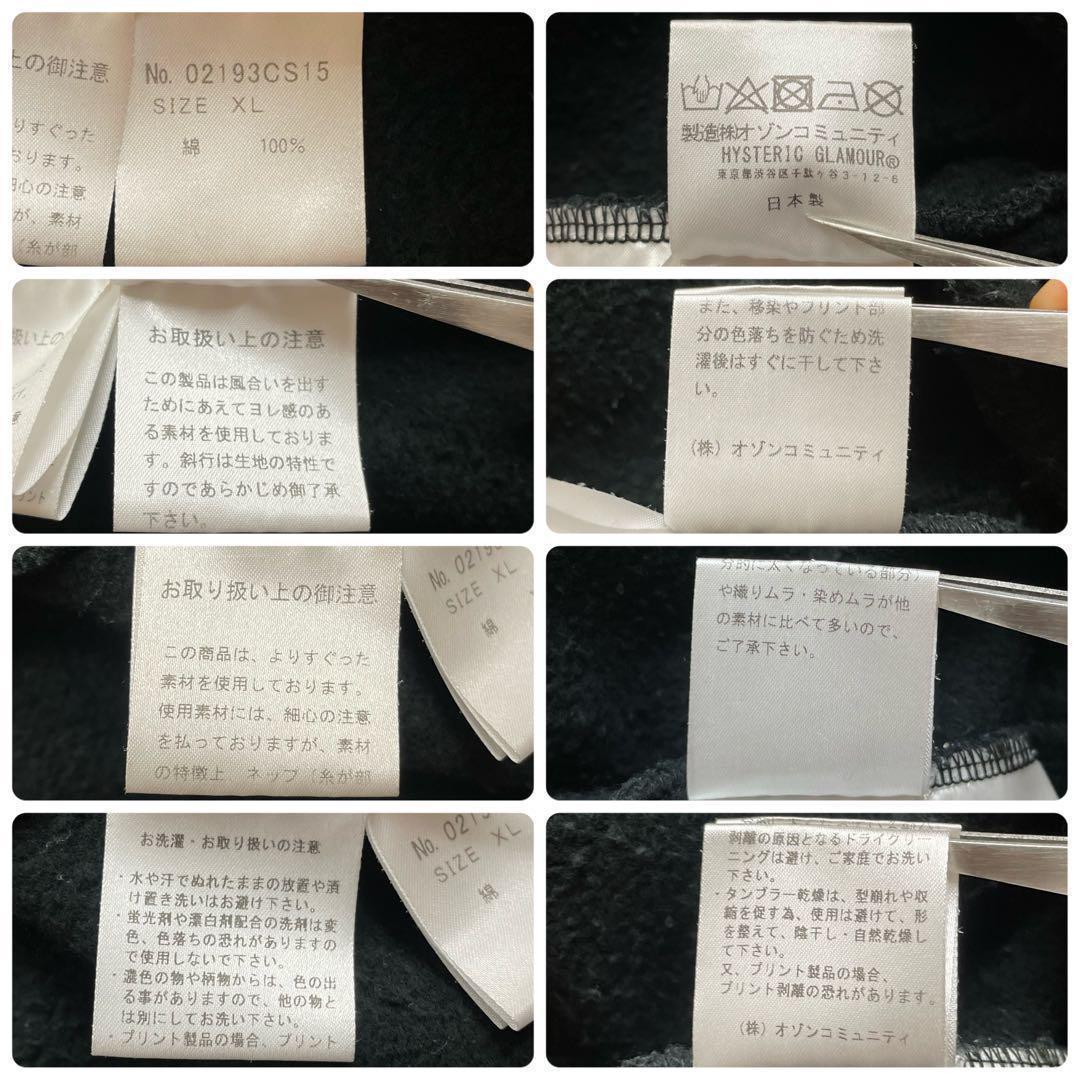 上の御注意
りすぐった
おります。
細心の注意
が、素材
（糸が部
No. 02193CS15
SIZE XL
綿 100%
製造(株)オゾンコミュニティ
HYSTERIC GLAMOUR®
東京都渋谷区千駄ヶ谷3-12-6
日本製
扱い上の
お取扱い上の注意
この製品は風合いを出す
ためにあえてヨレ感のあ
る素材を使用しておりま
す。斜行は生地の特性で
すのであらかじめ御了承
下さい。
また、移染やプリント部
分の色落ちを防ぐため洗
濯後はすぐに干して下さ
い。
（株）オゾンコミュニティ
お取り扱い上の御注意
この商品は、よりすぐった
素材を使用しております。
使用素材には、細心の注意
を払っておりますが、素材
の特徴上 ネップ（糸が部
No. 0219
SIZE XL
綿
分的に太くなっている部分）
や織りムラ・染めムラが他
の素材に比べて多いので、
ご了承下さい。
お洗濯・お取り扱いの注意
・水や汗でぬれたままの放置や漬
け置き洗いはお避け下さい。
・蛍光剤や漂白剤配合の洗剤は変
色、色落ちの恐れがありますの
で使用しないで下さい。
・濃色の物や柄物からは、色の出
る事がありますので、他の物と
は別にしてお洗い下さい。
・プリント製品の場合、プリント
No. 0219
SIZE XL
綿
剥離の原因となるドライクリー
ニングは避け、ご家庭でお洗い
下さい。
・タンブラー乾燥は、型崩れや収
縮を促す為、使用は避けて、形
を整えて、陰干し・自然乾燥し
て下さい。
又、プリント製品の場合、
プリント剥離の恐れがあります。
（株）オゾンコミュニティ